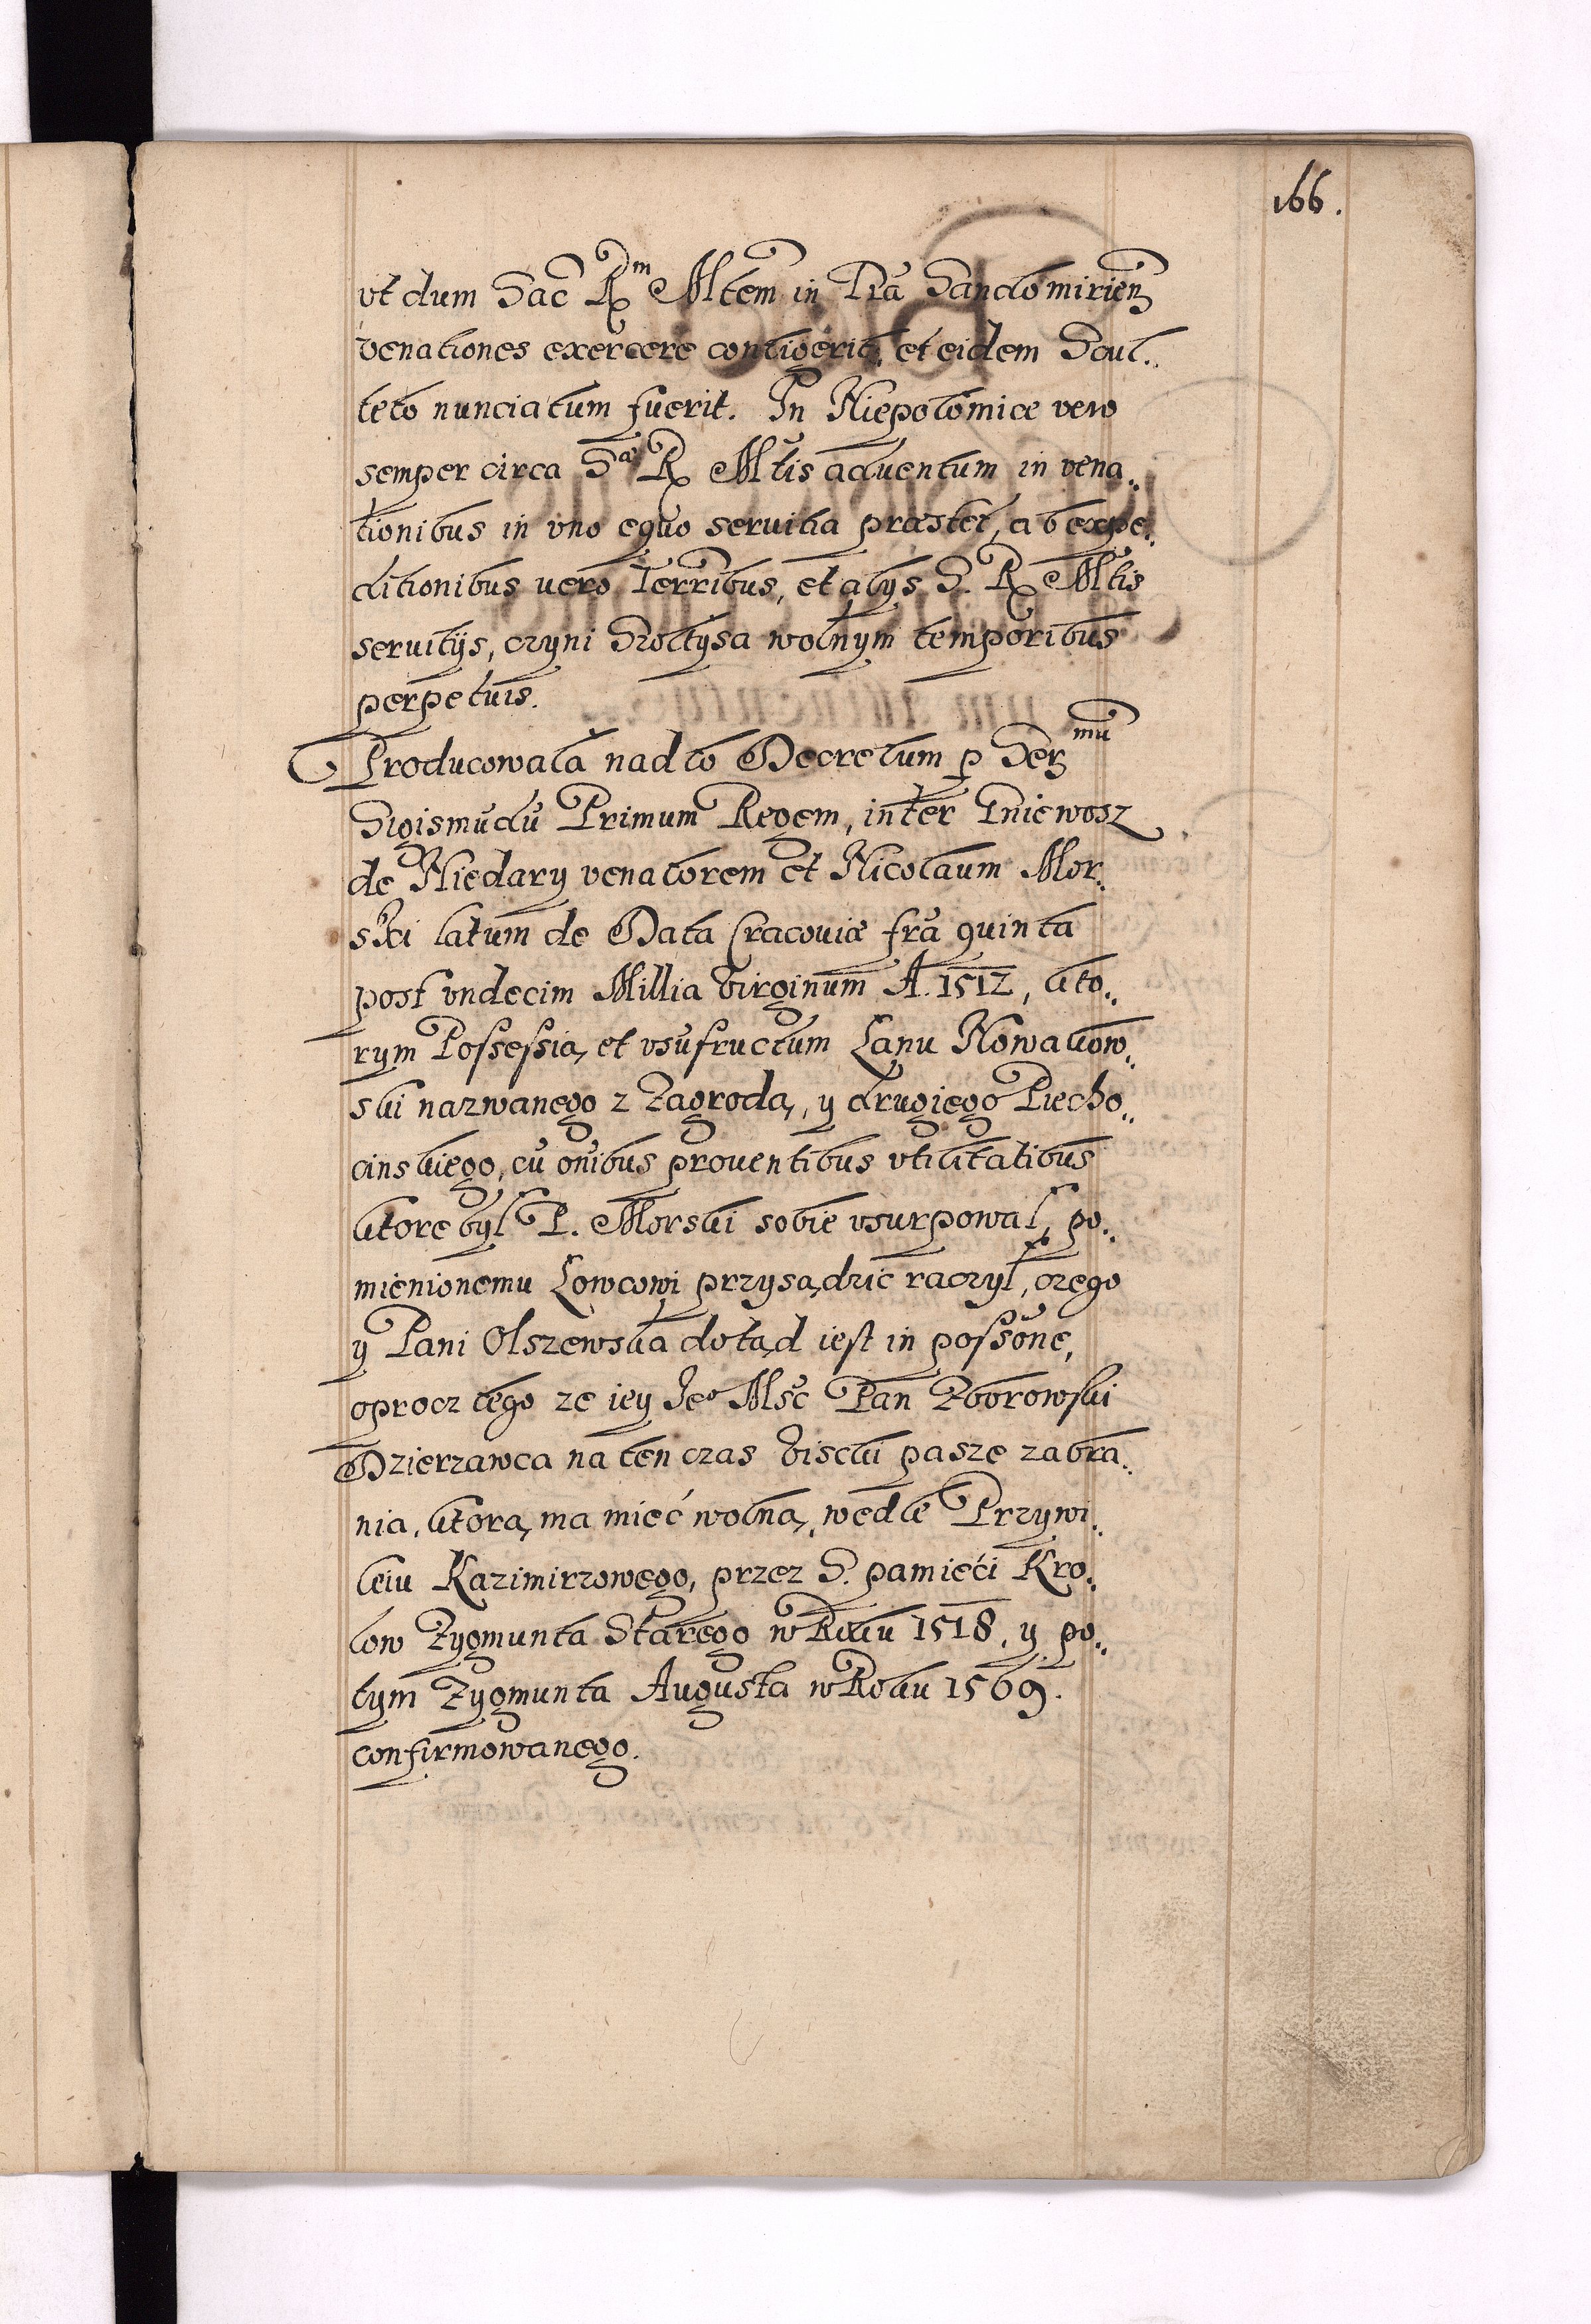 166.
vt dum Sac̃ Rm Mtem in Tra Sandomirien
venationes exercere contigerit, et eidem Scul..
teto nunciatum fuerit. In Niepolomice vero
semper circa Sae R Mtis aduentum in vena..
tionibus in vno equo seruitia præstet, ab expe..
ditionibus uero Terribus, et alys S. R Mtis
seruitijs, czyni Szołtysa wolnym temporibus
perpetuis.
Producowała nadto Decretum p Sermu
Sigismũdũ Primum Regem, inter Gniewosz
de Niedary venatorem et Nicolaum Mor..
ski latum de Data Cracouiæ frã quinta
post vndecim Millia Virginum A. 1512, kto..
rym Possessią et vsufructum Łanu Nowakow..
ski nazwanego z Zagrodą, y drugiego Piecho..
cinskiego, cũ oñibus prouentibus vtilitatibus
ktore był P. Morski sobie vsurpował, po..
mienionemu Łowcowi przysądzić raczył, czego
y Pani Olszewska dotąd iest in possone,
oprocz tego ze iey Jeo Msc Pan Zborowski
Dzierzawca na ten czas Viscki pasze zabra..
nia, ktorą ma mieć wolną, wedle Przywi..
leiu Kazimirzowego, przez S. pamięći Kro..
low Zygmunta Starego w Roku 1518. y po..
tym Zygmunta Augusta w Roku 1569.
confirmowanego.